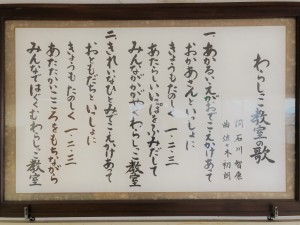 わらしっこ教室の歌
詞 石川 智康
曲 佐々木 初朗
一、あかるいえがおでこえかけあって
おかあさんといっしょに
きょうもたのしく 一・二・三
あたらしいいっぽをふみだして
みんながかがやくわらしっこ教室
二、きれいなひとみでこえかけあって
おともだちといっしょに
きょうもたのしく 一・二・三
あたたかいこころをもちながら
みんなではぐくむわらしっこ教室